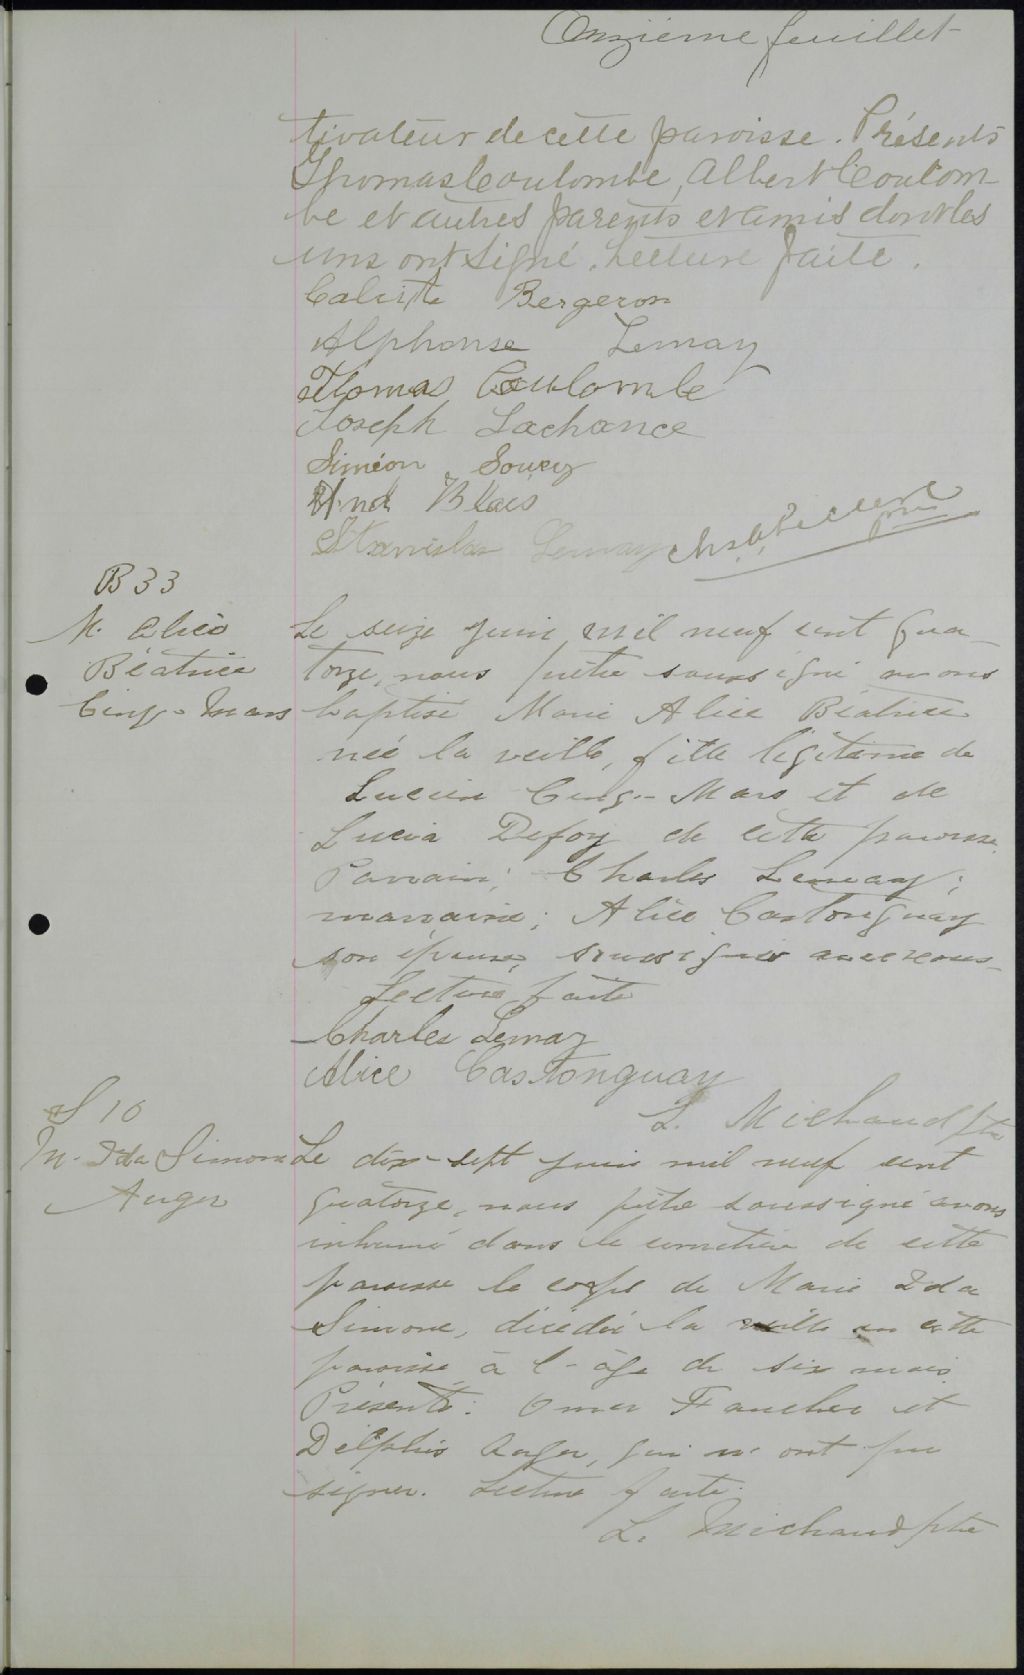 Onzième feuillet
tivateur de cette paroisse. Présents
Thomas Coulombe, Albert Coulom-
be et autres parents et amis dont les
uns ont signé. Lecture faite.
Calixte Bergeron
Alphonse Lemay
Thomas Coulombe
Joseph Lachance
Siméon Soucy
And Blais
Stanislas Lemay ptre
B 33
M. Alice
Béatrice
Cinq-Mars
Le seize juin mil neuf cent qua-
torze, nous prêtre soussigné avons
baptisé Marie Alice Béatrice
née la veille, fille légitime de
Lucien Cinq-Mars et de
Lucia Defoy de cette paroisse.
Parrain; Charles Lemay;
marraine; Alice Castonguay
son épouse, soussignés avec nous-
Lecture faite
Charles Lemay
Alice Castonguay
L. Michaud ptre
S 16
M. Ida Simone
Auger
Le dix-sept juin mil neuf cent
quatorze, nous prêtre soussigné avons
inhumé dans le cimetière de cette
paroisse le corps de Marie Ida
Simone, décédée la veille en cette
paroisse à l'âge de six mois
Présents: Omer Faucher et
Delphis Auger, qui n'ont pu
signer. Lecture faite.
L. Michaud ptre